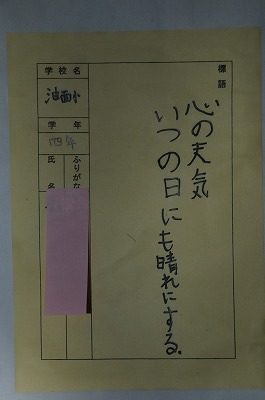 標語
心の天気
いつの日にも晴れにする。
学校名
油面小
学年
四年
ふりがな
氏名